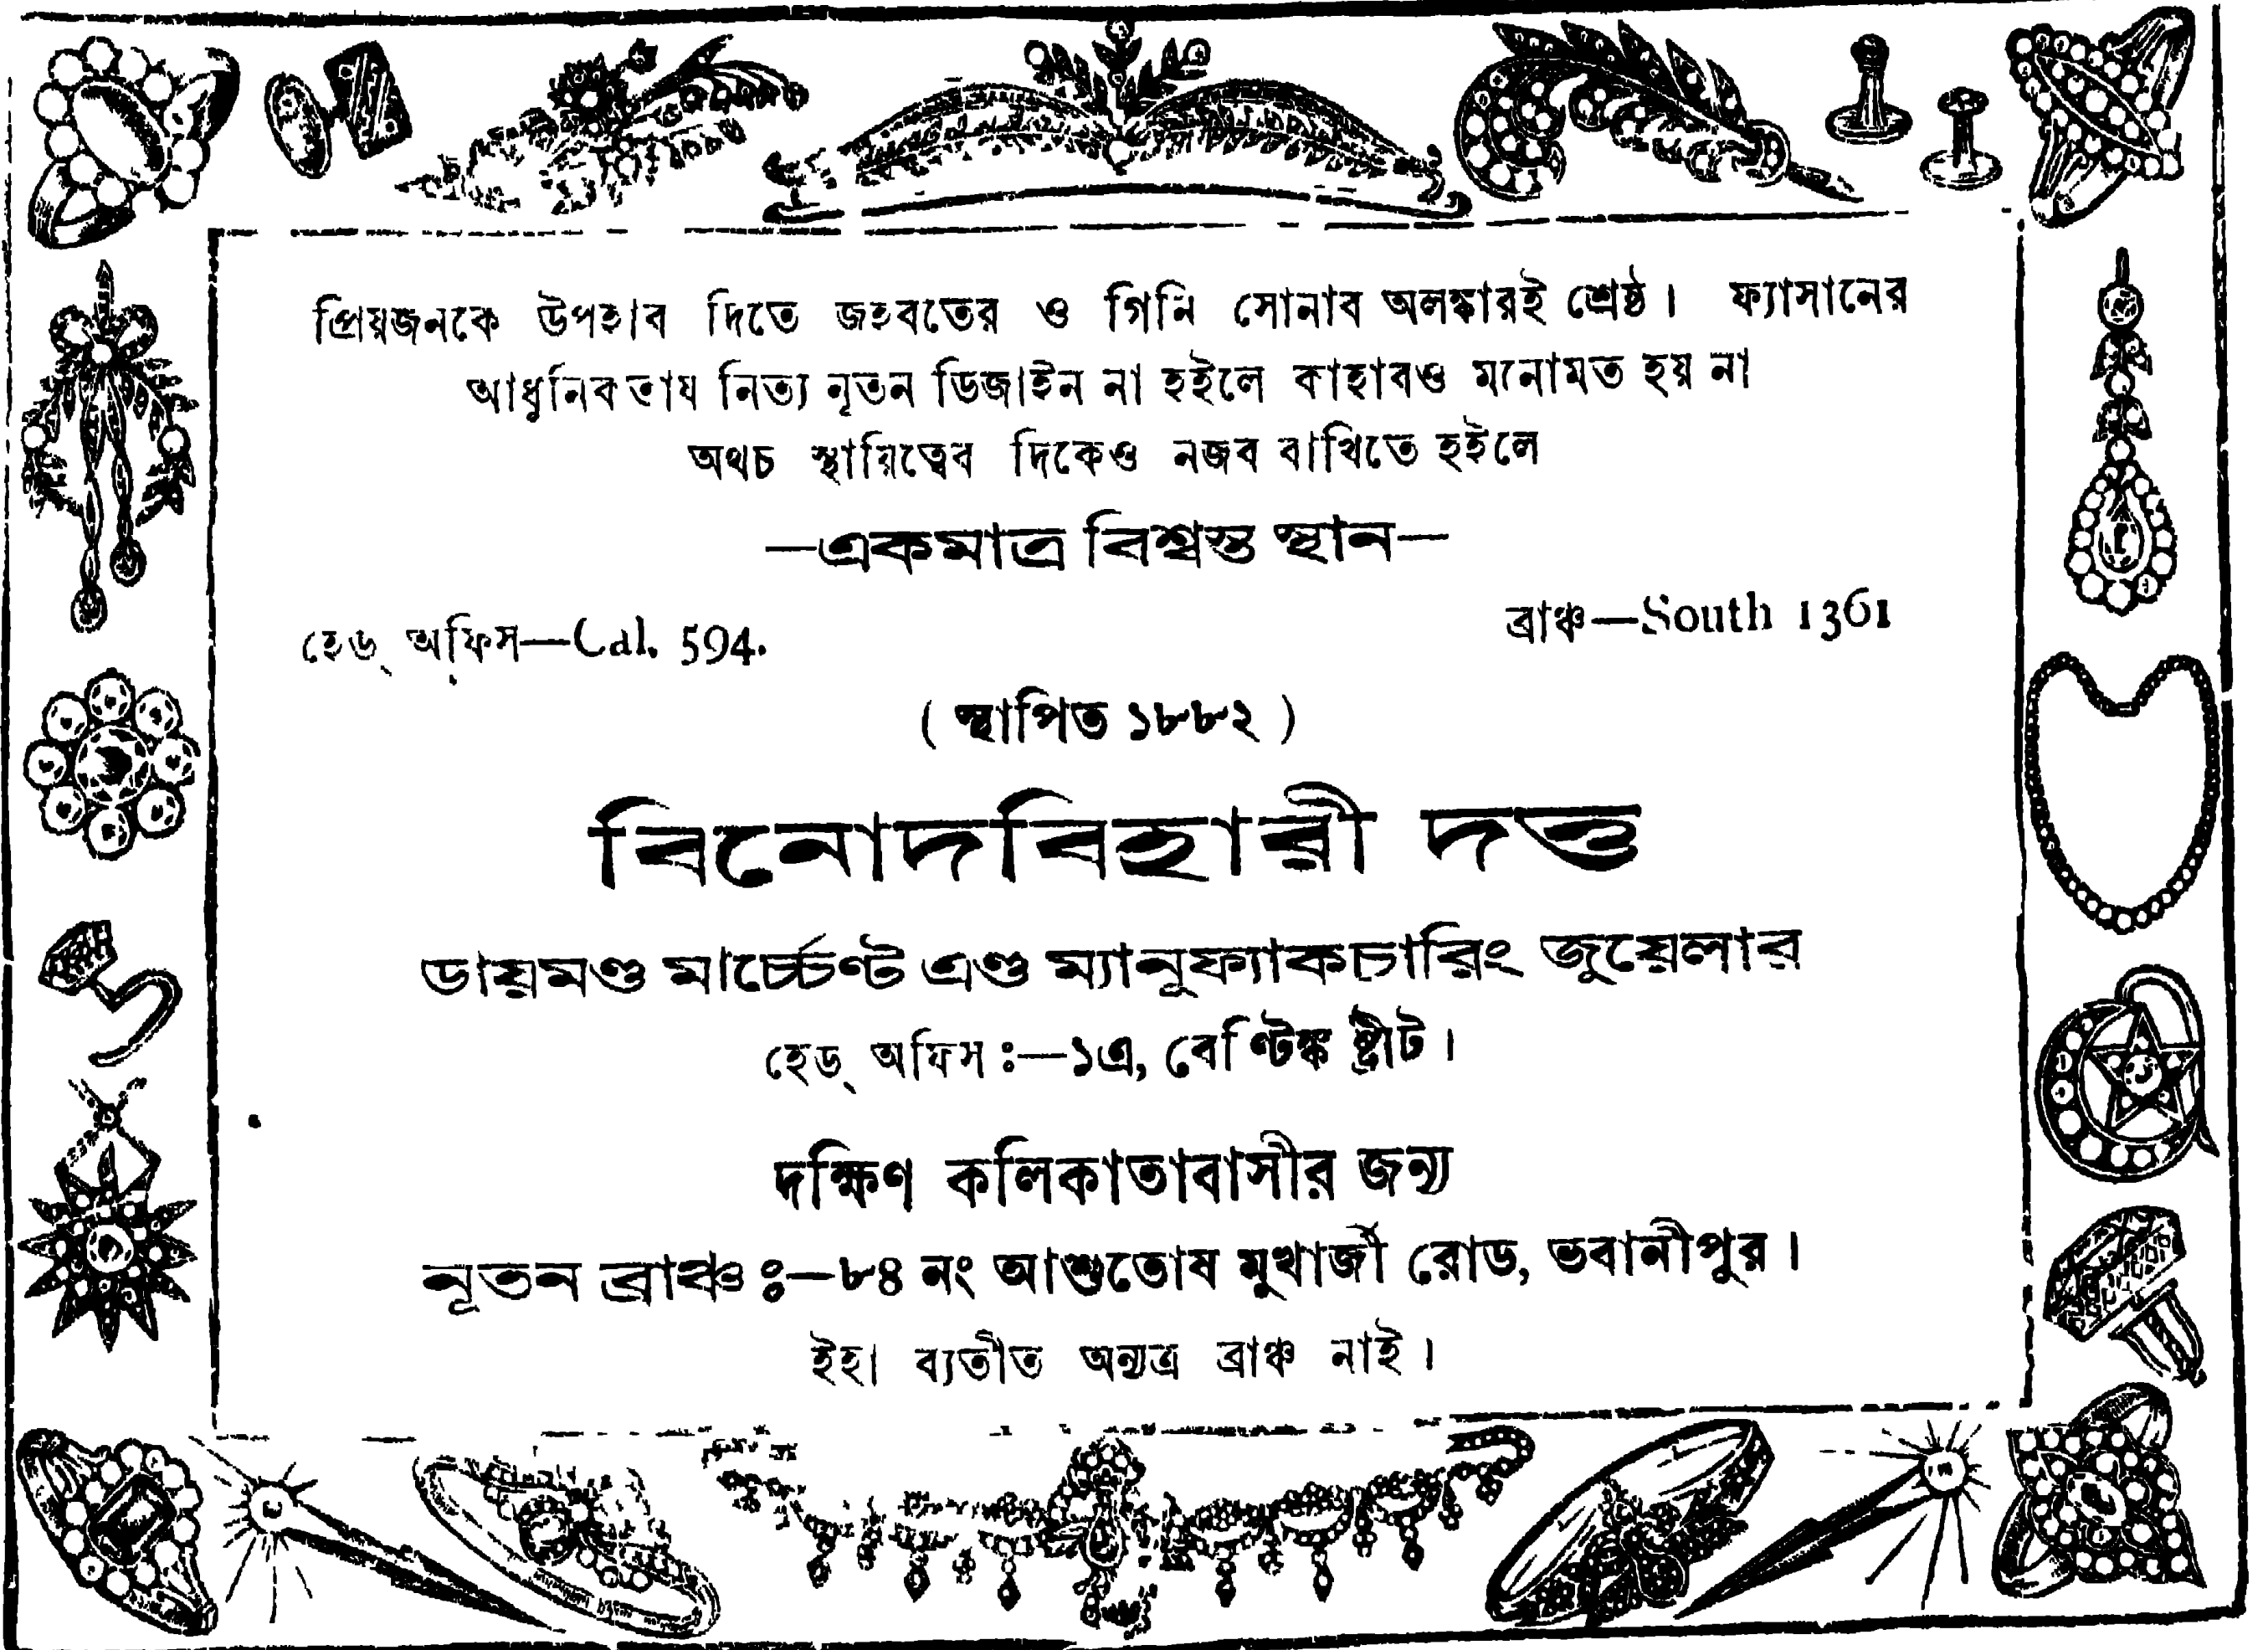 প্রিয়জনকে উপহার দিতে জহরতের ও গিনি সোনার অলঙ্কারই শ্রেষ্ঠ। ফ্যাসানের
আধুনিকতায় নিত্য নূতন ডিজাইন না হইলে কাহারও মনোমত হয় না
অথচ স্থায়িত্বের দিকেও নজর রাখিতে হইলে
—একমাত্র বিশ্বস্ত স্থান—
হেড্ অফিস—Cal. 594.
ব্রাঞ্চ—South 1361
( স্থাপিত ১৮৮২ )
বিনোদবিহারী দত্ত
ডায়মণ্ড মার্চ্চেণ্ট এণ্ড ম্যানূফ্যাকচারিং জুয়েলার
হেড্ অফিস ঃ—১এ, বেণ্টিঙ্ক ষ্ট্রীট।
দক্ষিণ কলিকাতাবাসীর জন্য
নূতন ব্রাঞ্চ ঃ—৮৪ নং আশুতোষ মুখার্জী রোড, ভবানীপুর।
ইহা ব্যতীত অন্যত্র ব্রাঞ্চ নাই।